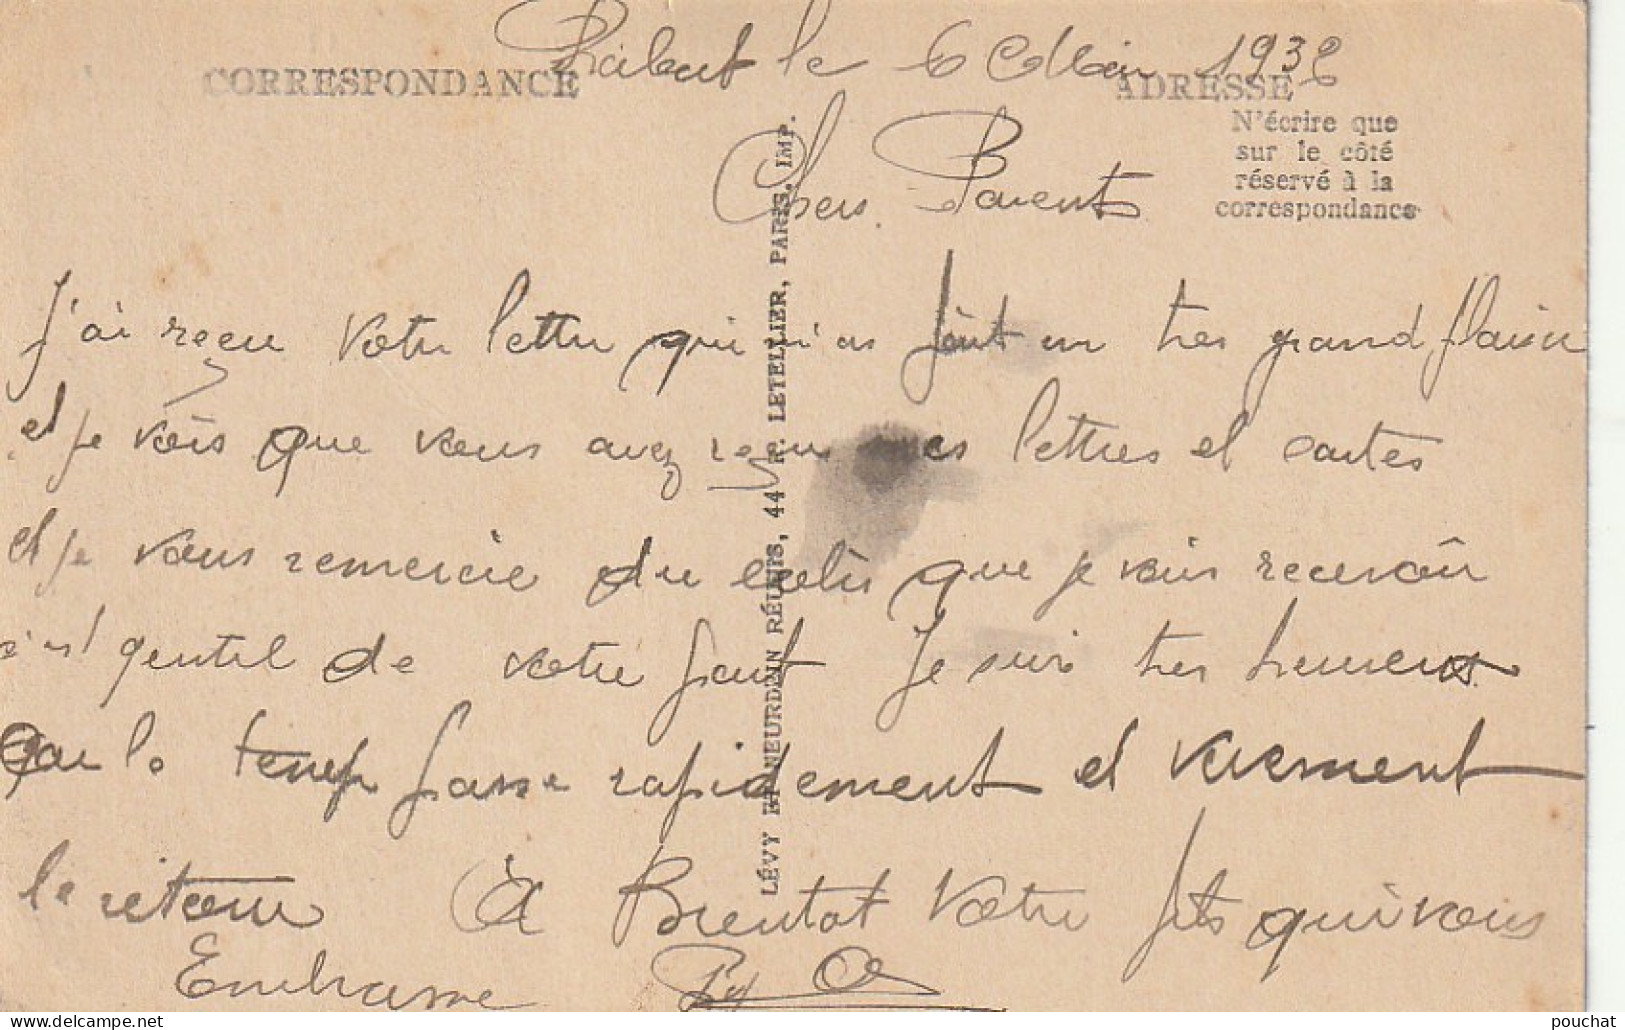 Rabat le 6 Mai 1932
CORRESPONDANCE
ADRESSE
N'écrire que
sur le côté
réservé à la
correspondance
Chers Parents
J'ai reçu votre lettre qui m'as fait un tres grand plaisir
et je vois que vous avez reçus mes lettres et cartes
et je vous remercie du colis que je vais recevoir
c'est gentil de votre part Je suis tres heureux
car le temp passe rapidement et vivement
le retour A Bientot Votre fils qui vous
Embrasse
LÉVY ET NEURDEIN RÉUNIS, 44 R. LETELLIER, PARIS, IMP.
pouchat